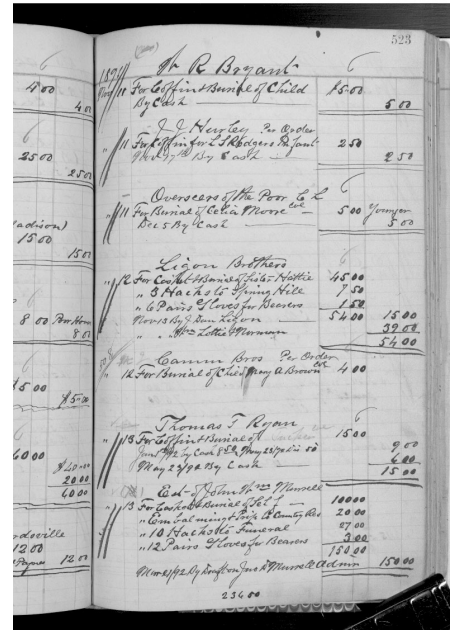 523
W R Bryant
11 For Coffin & Burial of Child $5 00
By Cash 5 00
J J Hurley Per Order
11 For Coffin for L S Rodgers 2 50
By Cash 2 50
Overseers of the Poor C L
11 For Burial of Celia Moore col 5 00 Younger
Dec 5 By Cash 5 00
Ligon Brothers
12 For Casket & Burial of Sister Hattie 45 00
" 3 Hacks to Spring Hill 7 50
" 6 Pairs Gloves for Bearers 1 50
Nov 13 By J Dan Ligon 54 00 15 00
" " Mrs Lottie Morman 39 00
54 00
Camm Bros Per Order
12 For Burial of Child Mary A Brown col 4 00
Thomas T Ryan
13 For Coffin & Burial of 15 00
9 00
May 23/92 By Cash 6 00
15 00
Est of John Wm Murrell
13 For Casket & Burial of Self 100 00
" Embalming 20 00
" 10 Hacks to Funeral 27 00
" 12 Pairs Gloves for Bearers 3 00
150 00
Murrell Admr 150 00
234 00
4 00
4 00
25 00
25 00
adison)
15 00
15 00
8 00 Poor Home
8 00
$5 00
$5 00
60 00
$40 00
20 00
60 00
rdsville
12 00
12 00